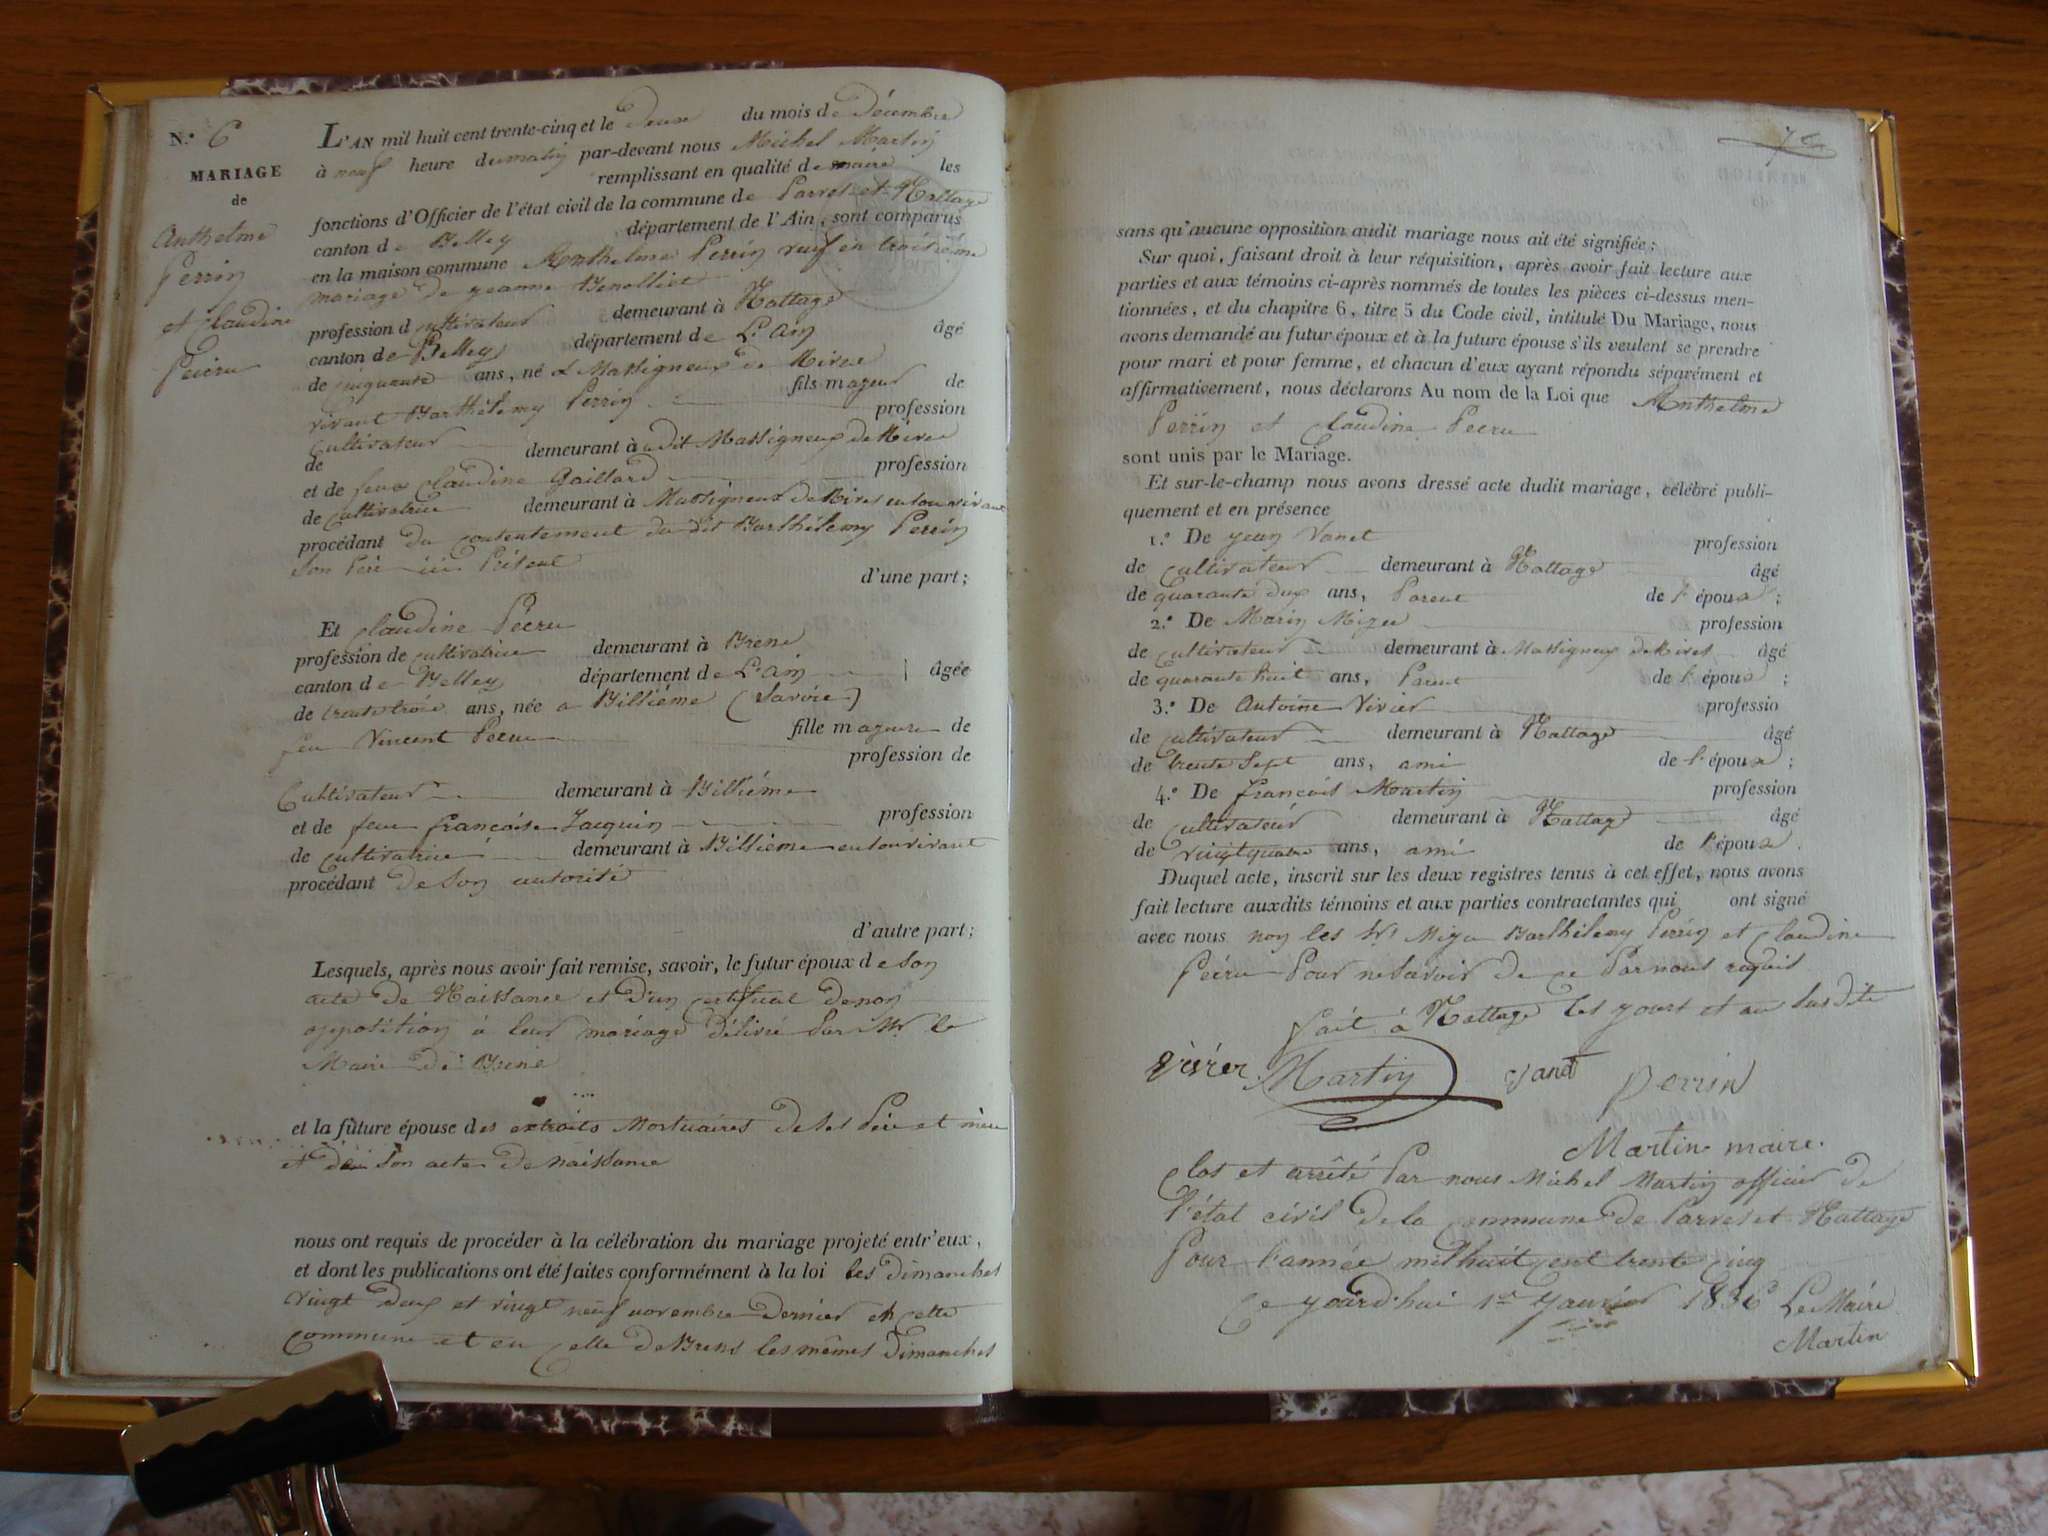 N.° 6
MARIAGE
de
Anthelme
Perrin
et Claudine
Peicru
L'AN mil huit cent trente-cinq et le deux du mois de Décembre
à neuf heure du matin par-devant nous Michel Martin
remplissant en qualité de maire les
fonctions d'Officier de l'état civil de la commune de Parves et Nattage
canton de Belley département de l'Ain, sont comparus
en la maison commune Anthelme Perrin veuf en troisième
mariage de jeanne Benolliet
profession d cultivateur demeurant à Nattage
canton de Belley département de L'ain âgé
de cinquante ans, né à Massigneux de Rives
fils mageur de
vivant Barthélemy Perrin profession
de Cultivateur demeurant à udit Massigneux de Rives
et de feue Claudine Gaillard profession
de cultivatrice demeurant à Massigneux de Rives en son vivant
procédant du contentement du dit Barthélemy Perrin
son Père ici Présent
d'une part;
Et Claudine Pécru
profession de cultivatrice demeurant à Brens
canton de Belley département de L'ain âgée
de trente trois ans, née a Billième (Savoie)
feu Vincent Pecru fille mageure de
profession de
Cultivateur demeurant à Billième
et de feue françoise Jacquin profession
de cultivatrice demeurant à Billième en son vivant
procédant de son autorité
d'autre part;
Lesquels, après nous avoir fait remise, savoir, le futur époux de son
acte de Naissance et d'un certificat de non
opposition à leur mariage délivré Par Mr le
Maire de Brens
et la future épouse des extraits Mortuaires de ses Père et mère
et de son acte de naissance
nous ont requis de procéder à la célébration du mariage projeté entr'eux,
et dont les publications ont été faites conformément à la loi les dimanches
vingt deux et vingt neuf novembre dernier en cette
commune et en celle de Brens les mêmes Dimanches
sans qu'aucune opposition audit mariage nous ait été signifiée;
Sur quoi, faisant droit à leur réquisition, après avoir fait lecture aux
parties et aux témoins ci-après nommés de toutes les pièces ci-dessus men-
tionnées, et du chapitre 6, titre 5 du Code civil, intitulé Du Mariage, nous
avons demandé au futur époux et à la future épouse s'ils veulent se prendre
pour mari et pour femme, et chacun d'eux ayant répondu séparément et
affirmativement, nous déclarons Au nom de la Loi que Anthelme
Perrin et Claudine Pecru
sont unis par le Mariage.
Et sur-le-champ nous avons dressé acte dudit mariage, célébré publi-
quement et en présence
1.° De jean Vanet profession
de cultivateur demeurant à Nattage âgé
de quarante deux ans, Parent de l'époux;
2.° De Marin Migee profession
de cultivateur demeurant à Massigneux de Rives âgé
de quarante huit ans, Parent de l'époux;
3.° De Antoine Vivier professio
de cultivateur demeurant à Nattage âgé
de trente sept ans, ami de l'époux;
4.° De françois Martin profession
de cultivateur demeurant à Nattage âgé
de vingt quatre ans, ami de l'époux.
Duquel acte, inscrit sur les deux registres tenus à cet effet, nous avons
fait lecture auxdits témoins et aux parties contractantes qui ont signé
avec nous non les Srs Barthélemy Perrin et Claudine
Peicru Pour ne savoir de ce Par nous requis
fait à Nattage les jours et an susdits
vivier Martin Perrin
Martin maire.
Clos et arrêté Par nous Michel Martin officier de
l'état civil de la commune de Parves et Nattage
Pour l'année mil huit cent trente cinq
Ce jourd'hui 1er Janvier 1836 Le Maire
Martin